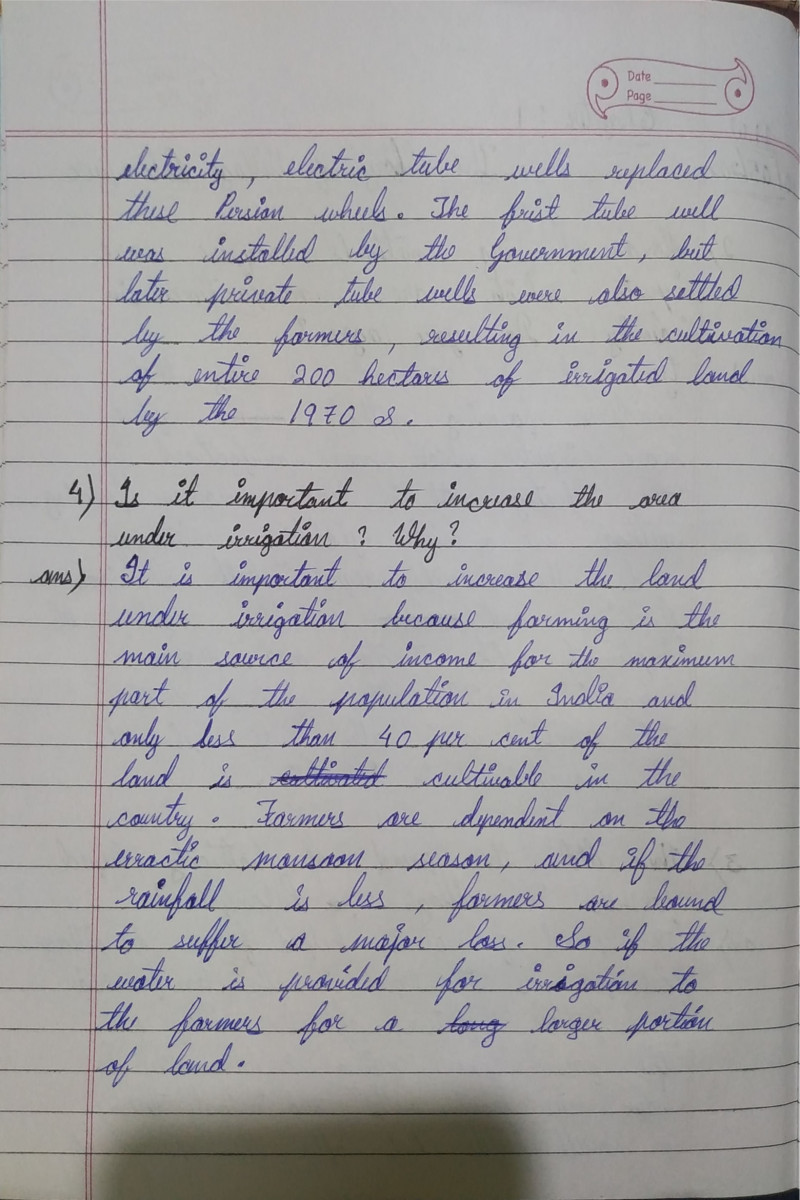 Date
Page
electricity, electric tube wells replaced
these Persian wheels. The frist tube well
was installed by the Government, but
later private tube wells were also settled
by the farmers, resulting in the cultivation
of entire 200 hectares of irrigated land
by the 1970 s.
4) Is it important to increase the area
under irrigation? Why?
ans) It is important to increase the land
under irrigation because farming is the
main source of income for the maximum
part of the population in India and
only less than 40 per cent of the
land is cultivated cultivable in the
country. Farmers are dependent on the
erractic monsoon season, and if the
rainfall is less, farmers are bound
to suffer a major loss. So if the
water is provided for irrigation to
the farmers for a long larger portion
of land.